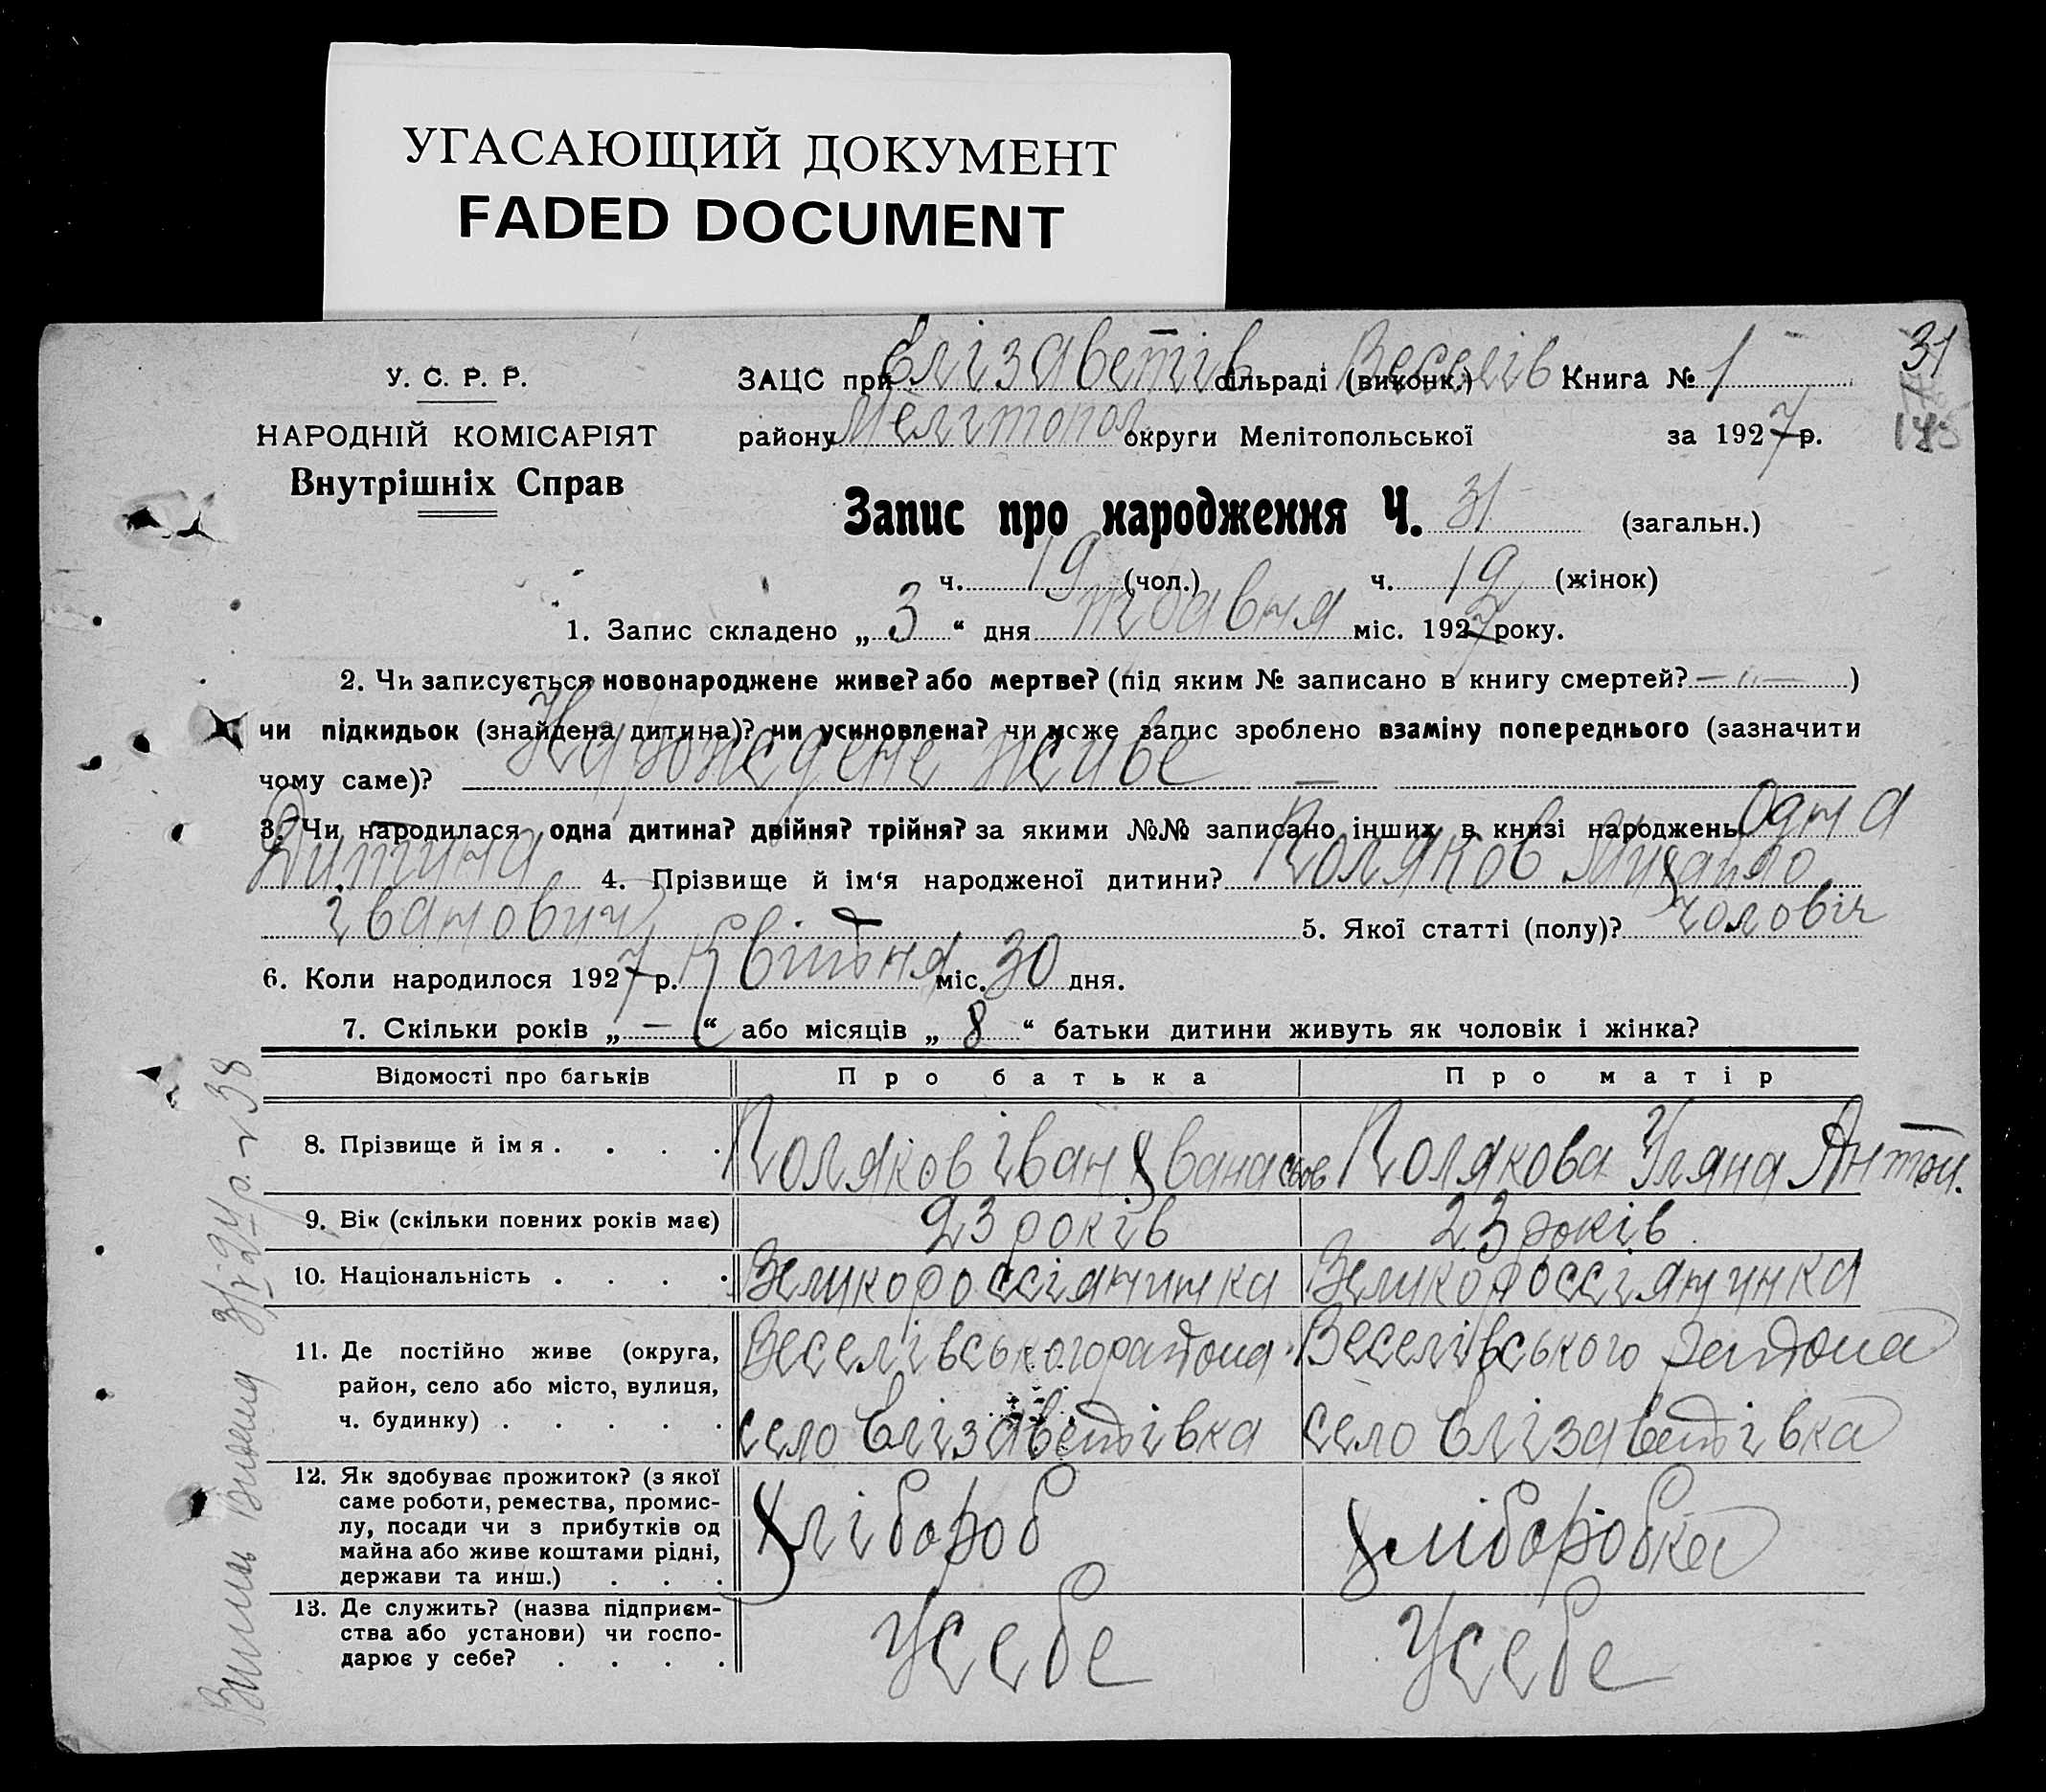 УГАСАЮЩИЙ ДОКУМЕНТ
FADED DOCUMENT
У. С. Р. Р.
НАРОДНІЙ КОМІСАРІЯТ
Внутрішніх Справ
31
ЗАЦС при Єлізаветів сільраді (виконк.) Веселів Книга № 1
району Мелітопол округи Мелітопольської за 1927 р.
Запис про народження Ч. 31 (загальн.)
ч. 19 (чол.) ч. 19 (жінок)
1. Запис складено „ 3 “ дня травня міс. 1927 року.
2. Чи записується новонароджене живе? або мертве? (під яким № записано в книгу смертей? — „ — )
чи підкидьок (знайдена дитина)? чи усиновлена? чи може запис зроблено взаміну попереднього (зазначити
чому саме)? Народжене живе —
3. Чи народилася одна дитина? двійня? трійня? за якими №№ записано інших в книзі народжень Одна
Дитина 4. Прізвище й ім‘я народженої дитини? Поляков Михайло
Іванович 5. Якої статті (полу)? чоловіч
6. Коли народилося 1927 р. Квітня міс. 30 дня.
7. Скільки років „ — “ або місяців „ 8 “ батьки дитини живуть як чоловік і жінка?
Відомості про батьків Про батька Про матір
8. Прізвище й імя . . . . Поляков Іван Полякова Уляна Антон.
9. Вік (скільки повних років має) 23 років 23 років
10. Національність . . . . Великороссіянинка Великороссіянинка
11. Де постійно живе (округа, Веселівського района Веселівського района
район, село або місто, вулиця,
ч. будинку) . . . . . село Єлізаветівка село Єлізаветівка
12. Як здобуває прожиток? (з якої
саме роботи, ремества, промис-
лу, посади чи з прибутків од Хлібороб Хліборобка
майна або живе коштами рідні,
держави та инш.) . . .
13. Де служить? (назва підприєм-
ства або установи) чи госпо- У себе У себе
дарює у себе? . . . .